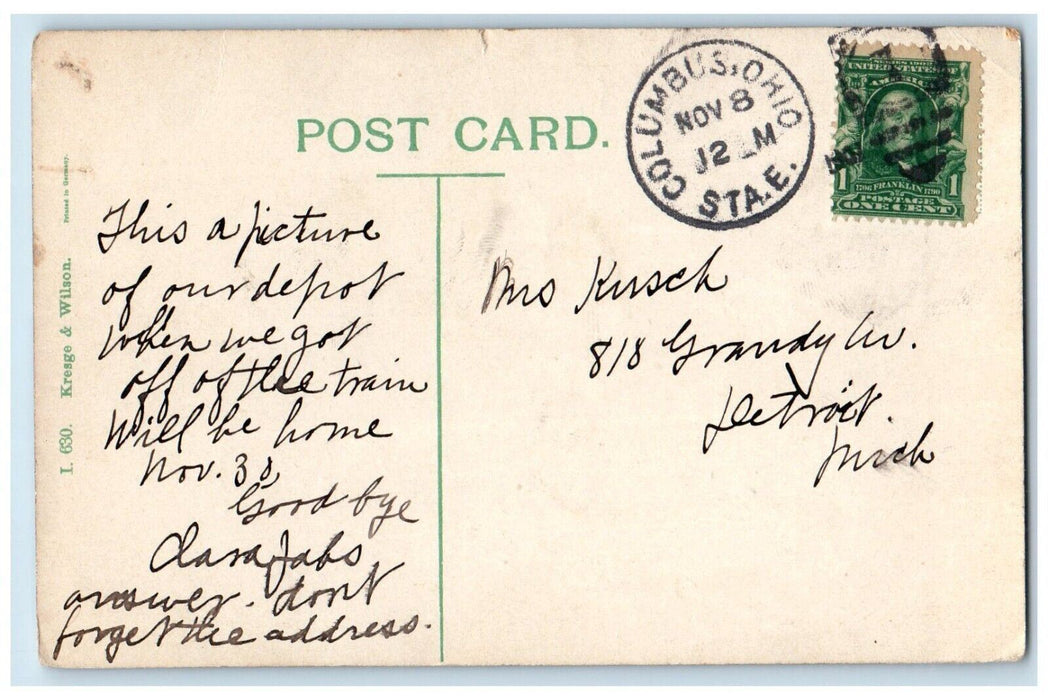 POST CARD.
COLUMBUS, OHIO
NOV 8
12 M
STA. E.
SERIES 1902
UNITED STATES OF
AMERICA
1 1706 FRANKLIN 1790 1
POSTAGE
ONE CENT
Printed in Germany.
I. 630. Kresge & Wilson.
This a picture
of our depot
when we got
off of the train
Will be home
Nov. 30
Good bye
Clara Jabs
answer. dont
forget the address.
Mrs Kusch
818 Grandy Av.
Detroit.
Mich